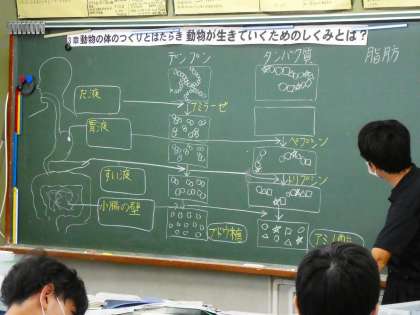 3章動物の体のつくりとはたらき 動物が生きていくためのしくみとは?
デンプン
タンパク質
脂肪
だ液
アミラーゼ
胃液
ペプシン
すい液
トリプシン
小腸の壁
ブドウ糖
アミノ酸